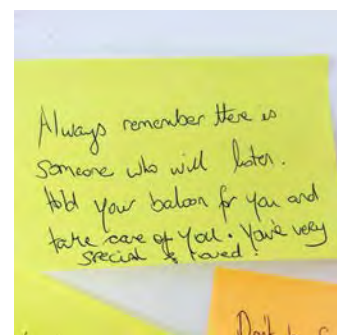 Always remember there is
someone who will listen.
Hold your baloon for you and
take care of you. You're very
special & loved!
Don't